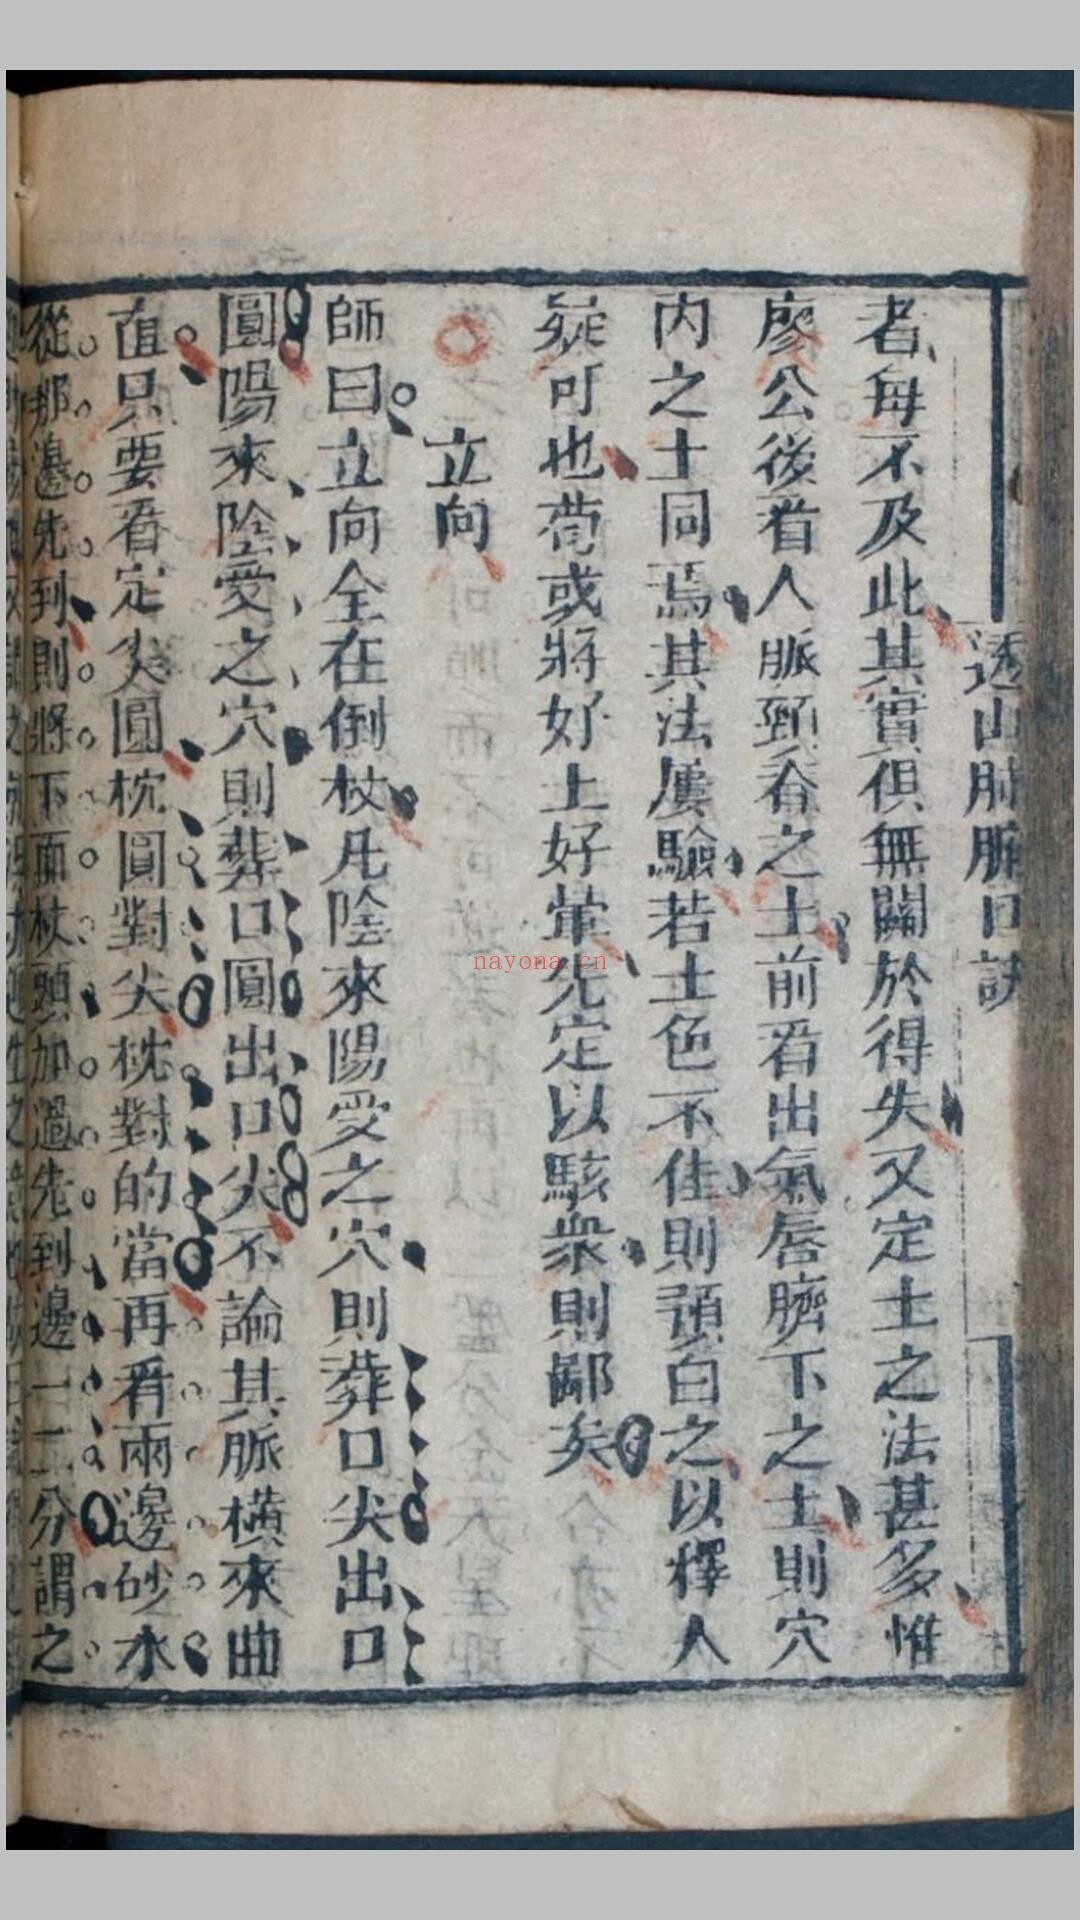 透山肘脈口訣
者每不及此其實俱無關於得失又定土之法甚多惟
廖公後看人脈頸脊之土前看出氣唇臍下之土則穴
内之土同焉其法屢驗若土色不佳則預白之以釋人
疑可也苟或將好土好葷先定以駭衆則鄙矣
立向
師曰立向全在倒杖凡陰來陽受之穴則葬口尖出口
圓陽來陰受之穴則葬口圓出口尖不論其脈橫來曲
直只要看定尖圓枕圓對尖枕對的當再看兩邊砂水
從那邊先到則將下面杖頭加過先到邊一二分謂之
nayona.cn